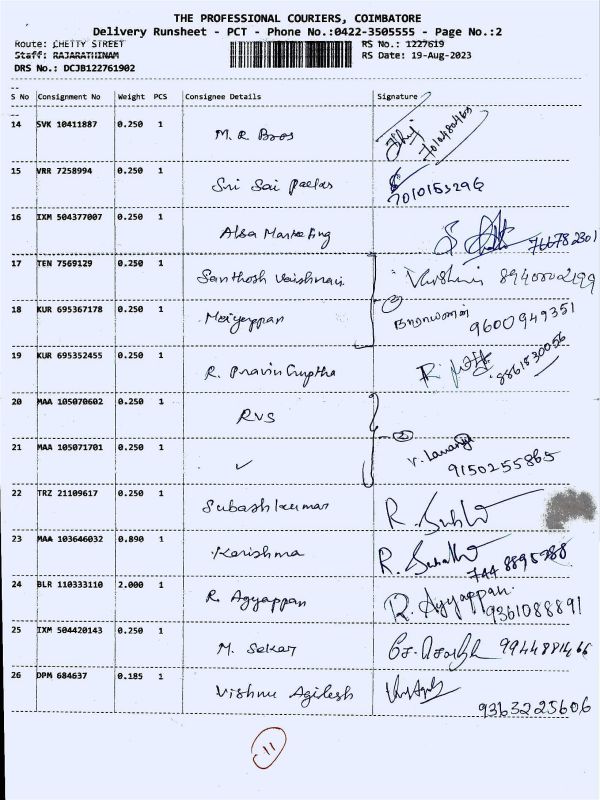 THE PROFESSIONAL COURIERS, COIMBATORE
Delivery Runsheet - PCT - Phone No.:0422-3505555 - Page No.:2
Route: CHETTY STREET RS No.: 1227619
Staff: RAJARATHINAM RS Date: 19-Aug-2023
DRS No.: DCJB122761902
S No Consignment No Weight PCS Consignee Details Signature
14 SVK 10411887 0.250 1 M.R. Bros 7010480463
15 VRR 7258994 0.250 1 Sri Sai 7010153296
16 IXM 504377007 0.250 1 Alsa Marketing
17 TEN 7569129 0.250 1 Santhosh Vaishnavi
18 KUR 695367178 0.250 1 Meiyappan 9600949351
19 KUR 695352455 0.250 1 R. Pravin Guptha 8861830056
20 MAA 105070602 0.250 1 RVS
21 MAA 105071701 0.250 1 ✓ V. Lavanya 9150255865
22 TRZ 21109617 0.250 1 Subash kumar
23 MAA 103646032 0.890 1 Karishma
24 BLR 110333110 2.000 1 R. Ayyappan R. Ayyappan. 9361088891
25 IXM 504420143 0.250 1 M. Sekar
26 DPM 684637 0.185 1 Vishnu Agilesh 9363225606
11